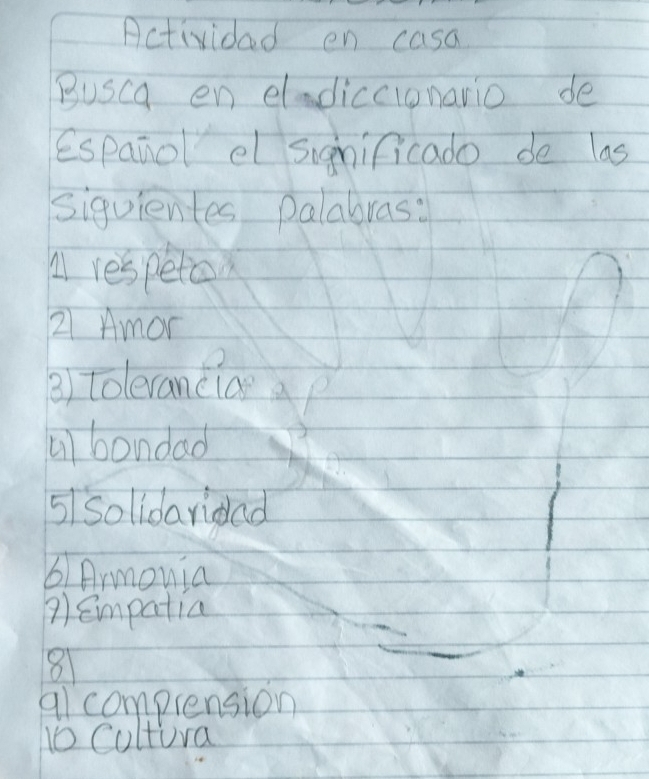 Actividad en casa
Busca en el diccionario de
Español el significado de las
siguientes palabras:
1) respeto
2) Amor
3) Tolerancia
4) bondad
5) Solidaridad
6) Armonia
7) Empatia
8)
9) comprensión
10 Cultura